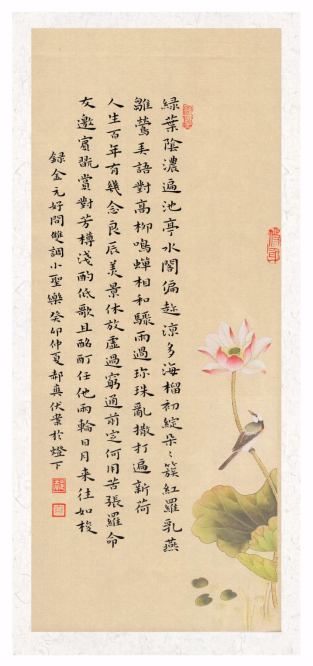 綠葉陰濃遍池亭水閣偏趁涼多海榴初綻朵〻簇紅羅乳燕
雛鶯弄語對高柳鳴蟬相和驟雨過珍珠亂撒打遍新荷
人生百年有幾念良辰美景休放虛過窮通前定何用苦張羅命
友邀賓翫賞對芳樽淺酌低歌且酩酊任他兩輪日月來往如梭
錄金元好問雙調小聖樂癸卯仲夏郝真伏案於燈下